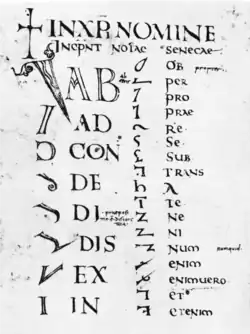 IN XP̄I NOMINE
INCP̄NT NOTAE SENECAE
AB
AD
CON
DE
DI
DIS
EX
IN
OB
PER
PRO
PRAE
RE
SE
SUB
TRANS
A
TE
NE
NI
NUM numquid
ENIM
ENIMUERO
ET
ETENIM